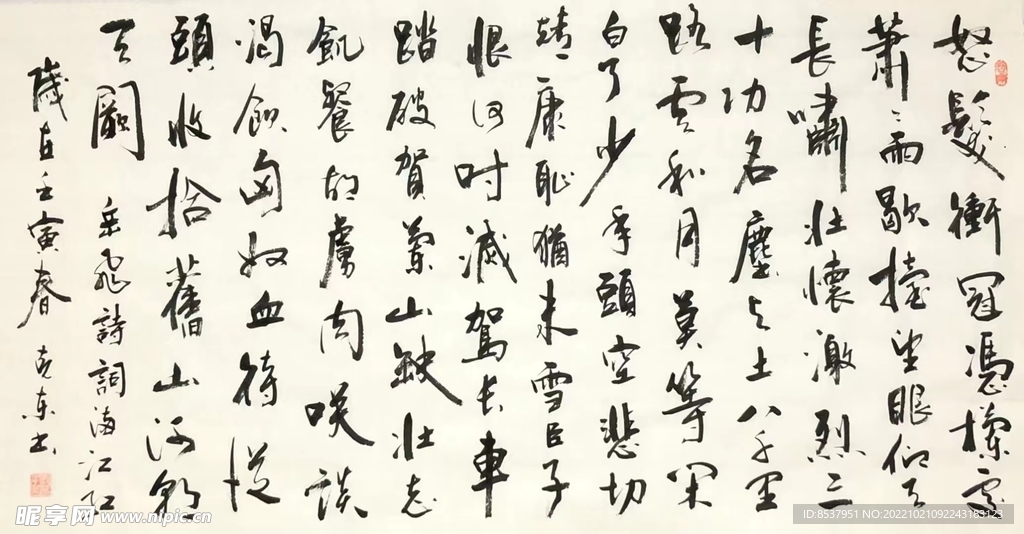 怒髮衝冠憑欄處
蕭〻雨歇擡望眼仰天
長嘯壯懷激烈三
十功名塵与土八千里
路雲和月莫等閑
白了少年頭空悲切
靖康恥猶未雪臣子
恨何時滅駕長車
踏破賀蘭山缺壯志
飢餐胡虜肉咲談
渴飲匈奴血待從
頭收拾舊山河朝
天闕
岳飛詩詞滿江紅
歲在壬寅春 克東書
昵享网 www.nipic.cn
ID:8537951 NO:20221021092243183123